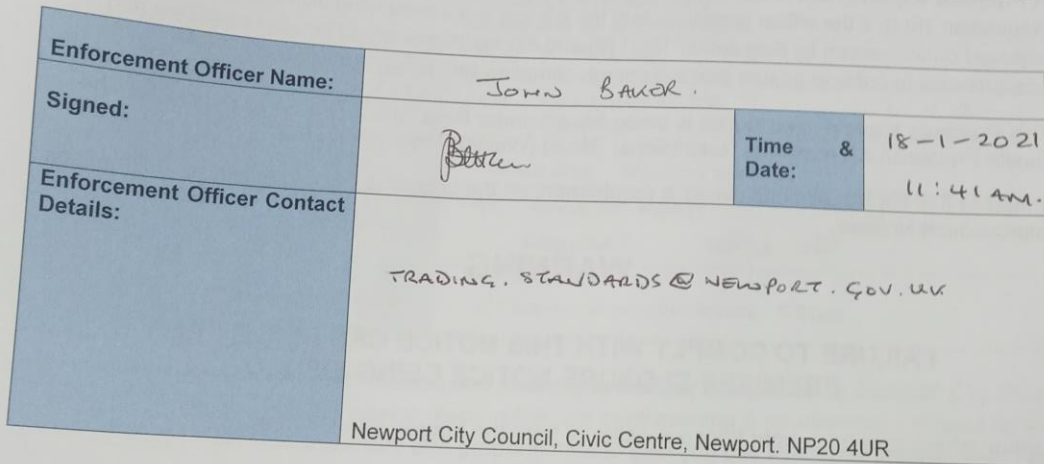 Enforcement Officer Name:
JOHN BAKER.
Signed:
Time & Date:
18-1-2021
11:41 AM.
Enforcement Officer Contact Details:
TRADING.STANDARDS@NEWPORT.GOV.UK
Newport City Council, Civic Centre, Newport. NP20 4UR